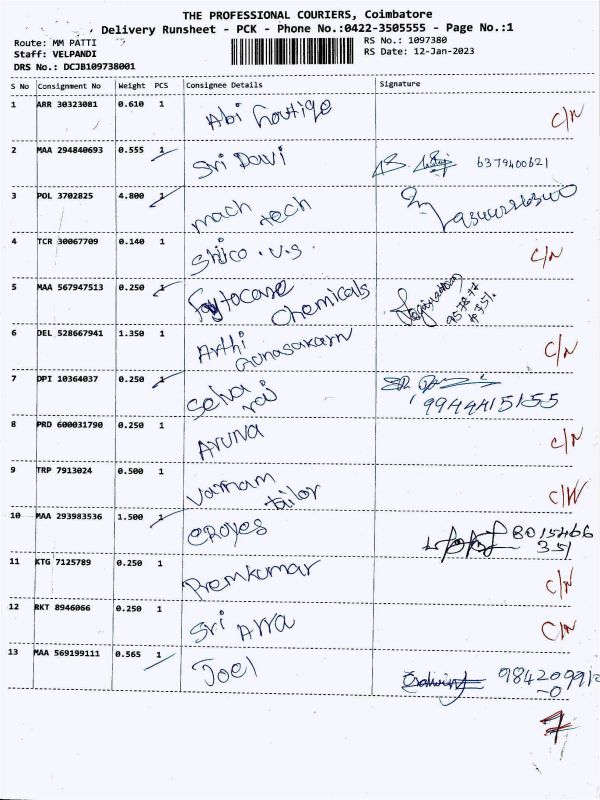 THE PROFESSIONAL COURIERS, Coimbatore
Delivery Runsheet - PCK - Phone No.:0422-3505555 - Page No.:1
Route: MM PATTI
RS No.: 1097380
Staff: VELPANDI
RS Date: 12-Jan-2023
DRS No.: DCJB109738001
S No Consignment No Weight PCS Consignee Details Signature
1 ARR 30323081 0.610 1 Abi C/N
2 MAA 294840693 0.555 1 Sri Davi 6379400621
3 POL 3702825 4.800 1 mach tech
4 TCR 30067709 0.140 1 Shico . v.s. C/N
5 MAA 567947513 0.250 1 Faytocare Chemicals
6 DEL 528667941 1.350 1 Arthi Gunasakarn C/N
7 DPI 10364037 0.250 1 Selva raj 9944415155
8 PRD 600031790 0.250 1 Aruna C/N
9 TRP 7913024 0.500 1 Varnam tailor C/N
10 MAA 293983536 1.500 1 eRoyes 8015466
351
11 KTG 7125789 0.250 1 Premkumar C/N
12 RKT 8946066 0.250 1 Sri Arra C/N
13 MAA 569199111 0.565 1 Joel 984209910
-0
7